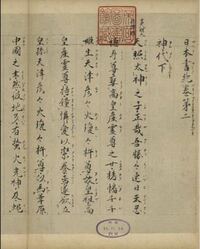 日本書紀巻第二
神代下
天照太神之子正哉吾勝々速日天忍
穂耳尊娶高皇産霊尊之女栲幡千千
姫生天津彦々火瓊々杵尊故皇祖高
皇産霊尊特鍾憐愛以崇養焉遂欲立
皇孫天津彦々火瓊々杵尊以為葦原
中國之主然彼地多有螢火光神及蠅